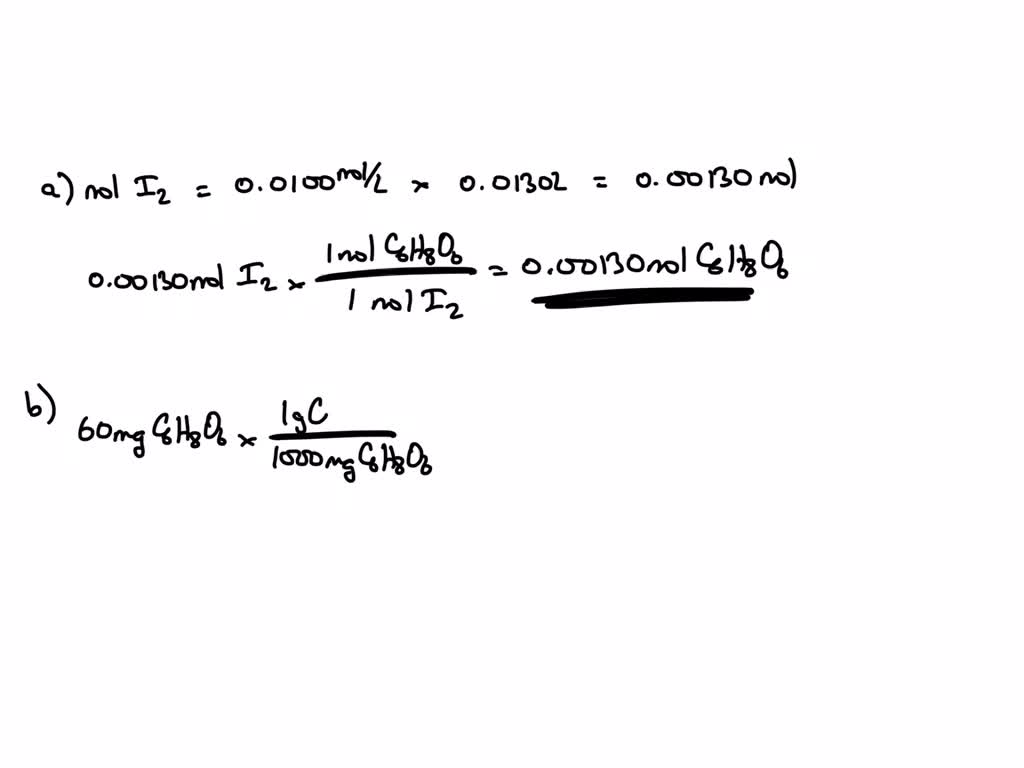 a) mol I₂ = 0.0100 mol/L × 0.0130L = 0.00130 mol
0.00130 mol I₂ × 1 mol C₆H₈O₆ / 1 mol I₂ = 0.00130 mol C₆H₈O₆
b) 60 mg C₆H₈O₆ × 1g C / 1000 mg C₆H₈O₆